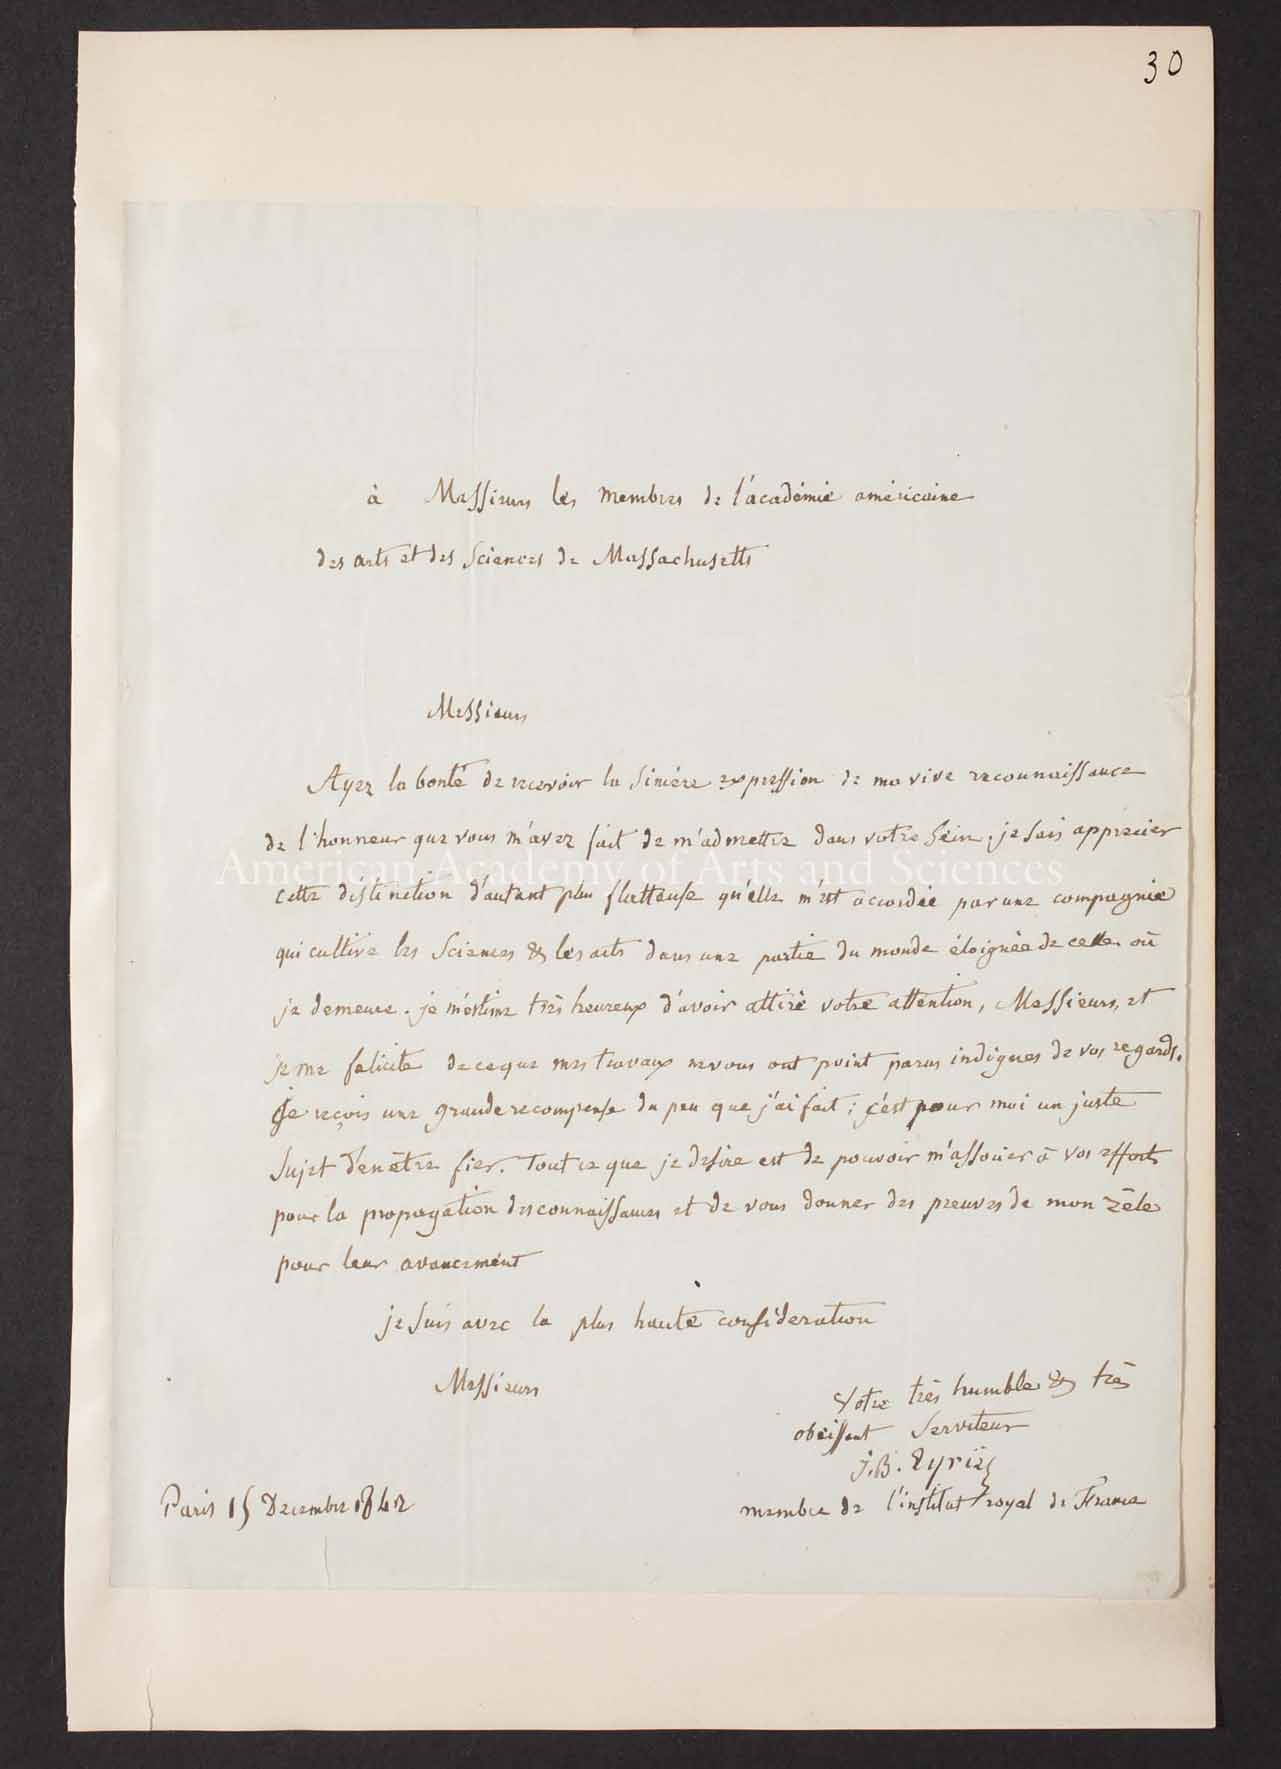 30
à Messieurs les membres de l'académie américaine
des arts et des Sciences de Massachusetts
Messieurs
Ayez la bonté de recevoir la sincère expression de ma vive reconnaissance
de l'honneur que vous m'avez fait de m'admettre dans votre sein. je sais apprecier
American Academy of Arts and Sciences
cette distinction d'autant plus flatteuse qu'elle m'est accordée par une compagnie
qui cultive les Sciences & les arts dans une partie du monde éloignée de celle où
je demeure. je m'estime très heureux d'avoir attiré votre attention, Messieurs, et
je me felicite de ce que mes travaux ne vous ont point parus indignes de vos regards.
Je reçois une grande recompense du peu que j'ai fait; c'est pour moi un juste
sujet d'en être fier. Tout ce que je desire est de pouvoir m'associer à vos efforts
pour la propagation des connaissances et de vous donner des preuves de mon zèle
pour leur avancement
je suis avec la plus haute consideration
Messieurs
Votre très humble & très
obeissant Serviteur
J. B. Eyriès
membre de l'institut royal de France
Paris 15 Decembre 1842